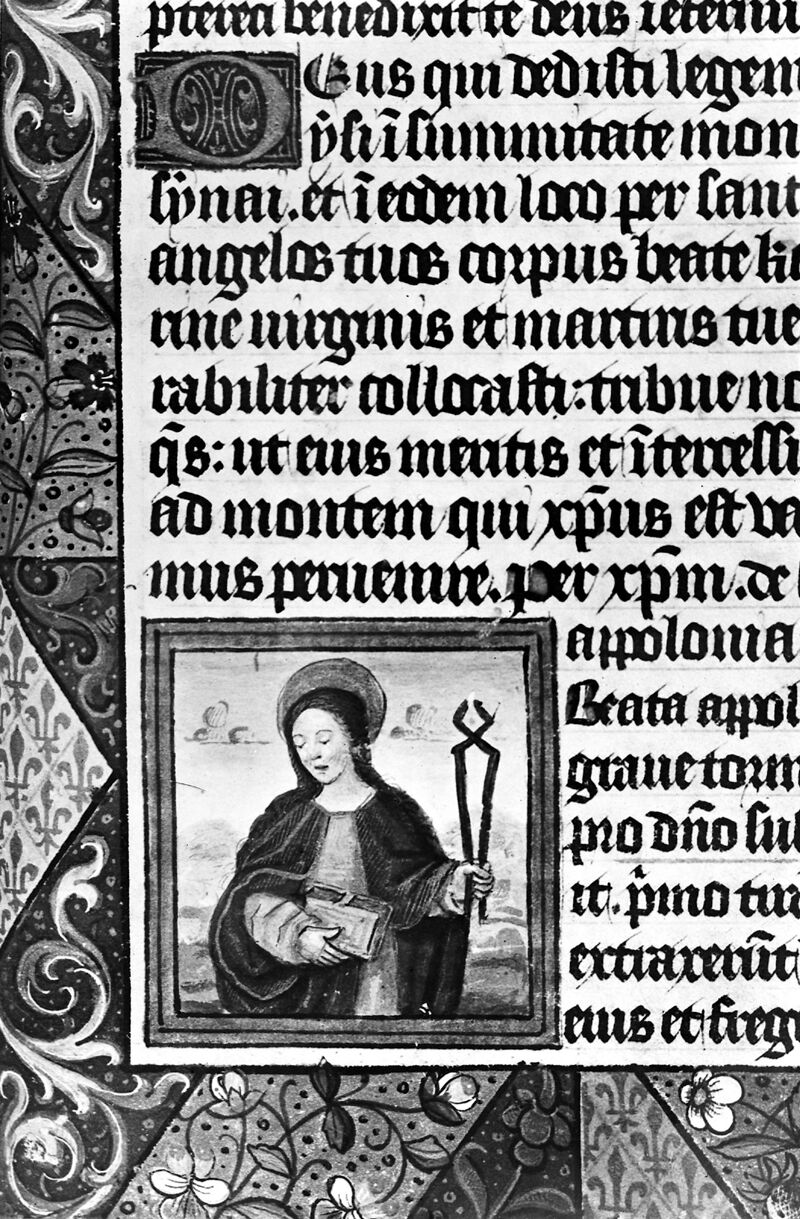 pterea benedixit te deus ieternu
Deus qui dedisti legem
ÿsi ī summitate mon
sÿnai. et ī eodem loco per sant
angelos tuos corpus beate ka
rine uirginis et martiris tue
rabiliter collocasti: tribue no
q̄s: ut eius meritis et ītercessi
ad montem qui xp̄us est va
mus peruenire. per xp̄m. de
appolonia
Beata appol
graue torm
pro dn̄o sus
it. p̄mo tira
extraxerūt
eius et fregu